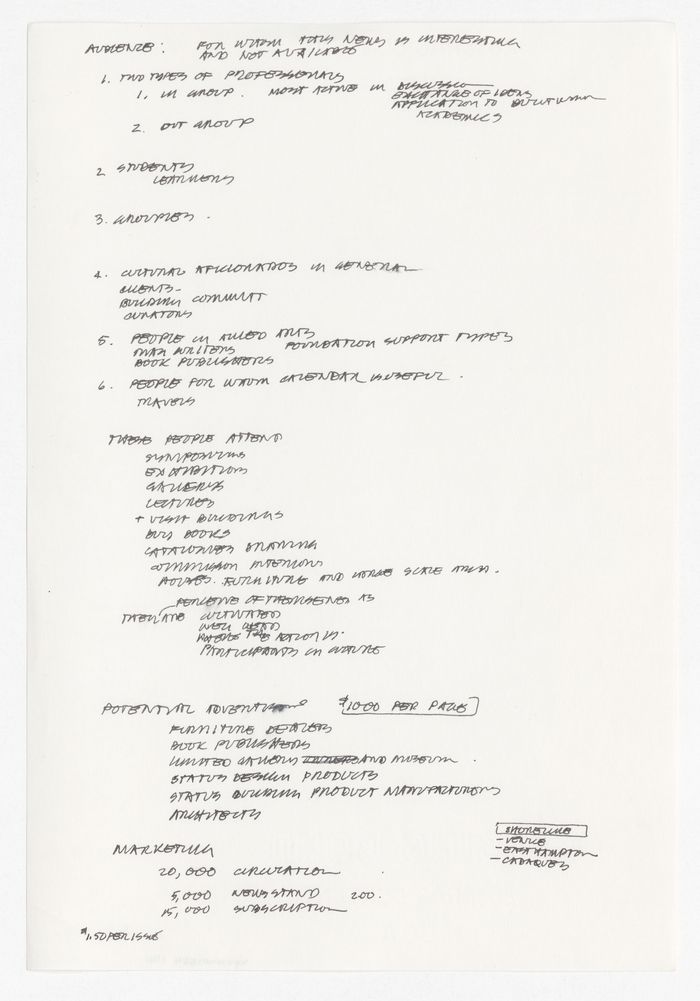 AUDIENCE: FOR WHOM THIS NEWS IS INTERESTING
AND NOT AVAILABLE
1. TWO TYPES OF PROFESSIONALS
1. IN GROUP. MOST ACTIVE IN DISCUSSION
EXCHANGE OF IDEAS
APPLICATION TO
ACADEMICS
2. OUT GROUP
2 STUDENTS
LEARNERS
3. GROUPIES.
4. CULTURAL AFICIONADOS IN GENERAL
CLIENTS-
BUILDING COMMUNIT
CURATORS
5. PEOPLE IN ALLIED ARTS
WRITERS FOUNDATION SUPPORT TYPES
BOOK PUBLISHERS
6. PEOPLE FOR WHOM CALENDAR IS USEFUL.
TRAVELS
THESE PEOPLE ATTEND
SYMPOSIUMS
EXHIBITIONS
GALLERIES
LECTURES
+ VISIT BUILDINGS
BUY BOOKS
CATALOGUES DRAWING
COMMISSION INTERIORS
HOUSES. FURNITURE AND LARGE SCALE ARCH.
PERCEIVE OF THEMSELVES AS
THEY ARE CULTIVATED
WELL READ
WHERE THE ACTION IS.
PARTICIPANTS IN CULTURE
POTENTIAL $1000 PER PAGE
FURNITURE DEALERS
BOOK PUBLISHERS
LIMITED GALLERIES AND MUSEUM.
STATUS DESIGN PRODUCTS
STATUS BUILDING PRODUCT MANUFACTURERS
ARCHITECTS
SHORELINE
- VENICE
- EASTHAMPTON
- CADAQUES
MARKETING
20,000 CIRCULATION
5,000 NEWSSTAND 200.
15,000 SUBSCRIPTION
$1.50 PER ISSUE